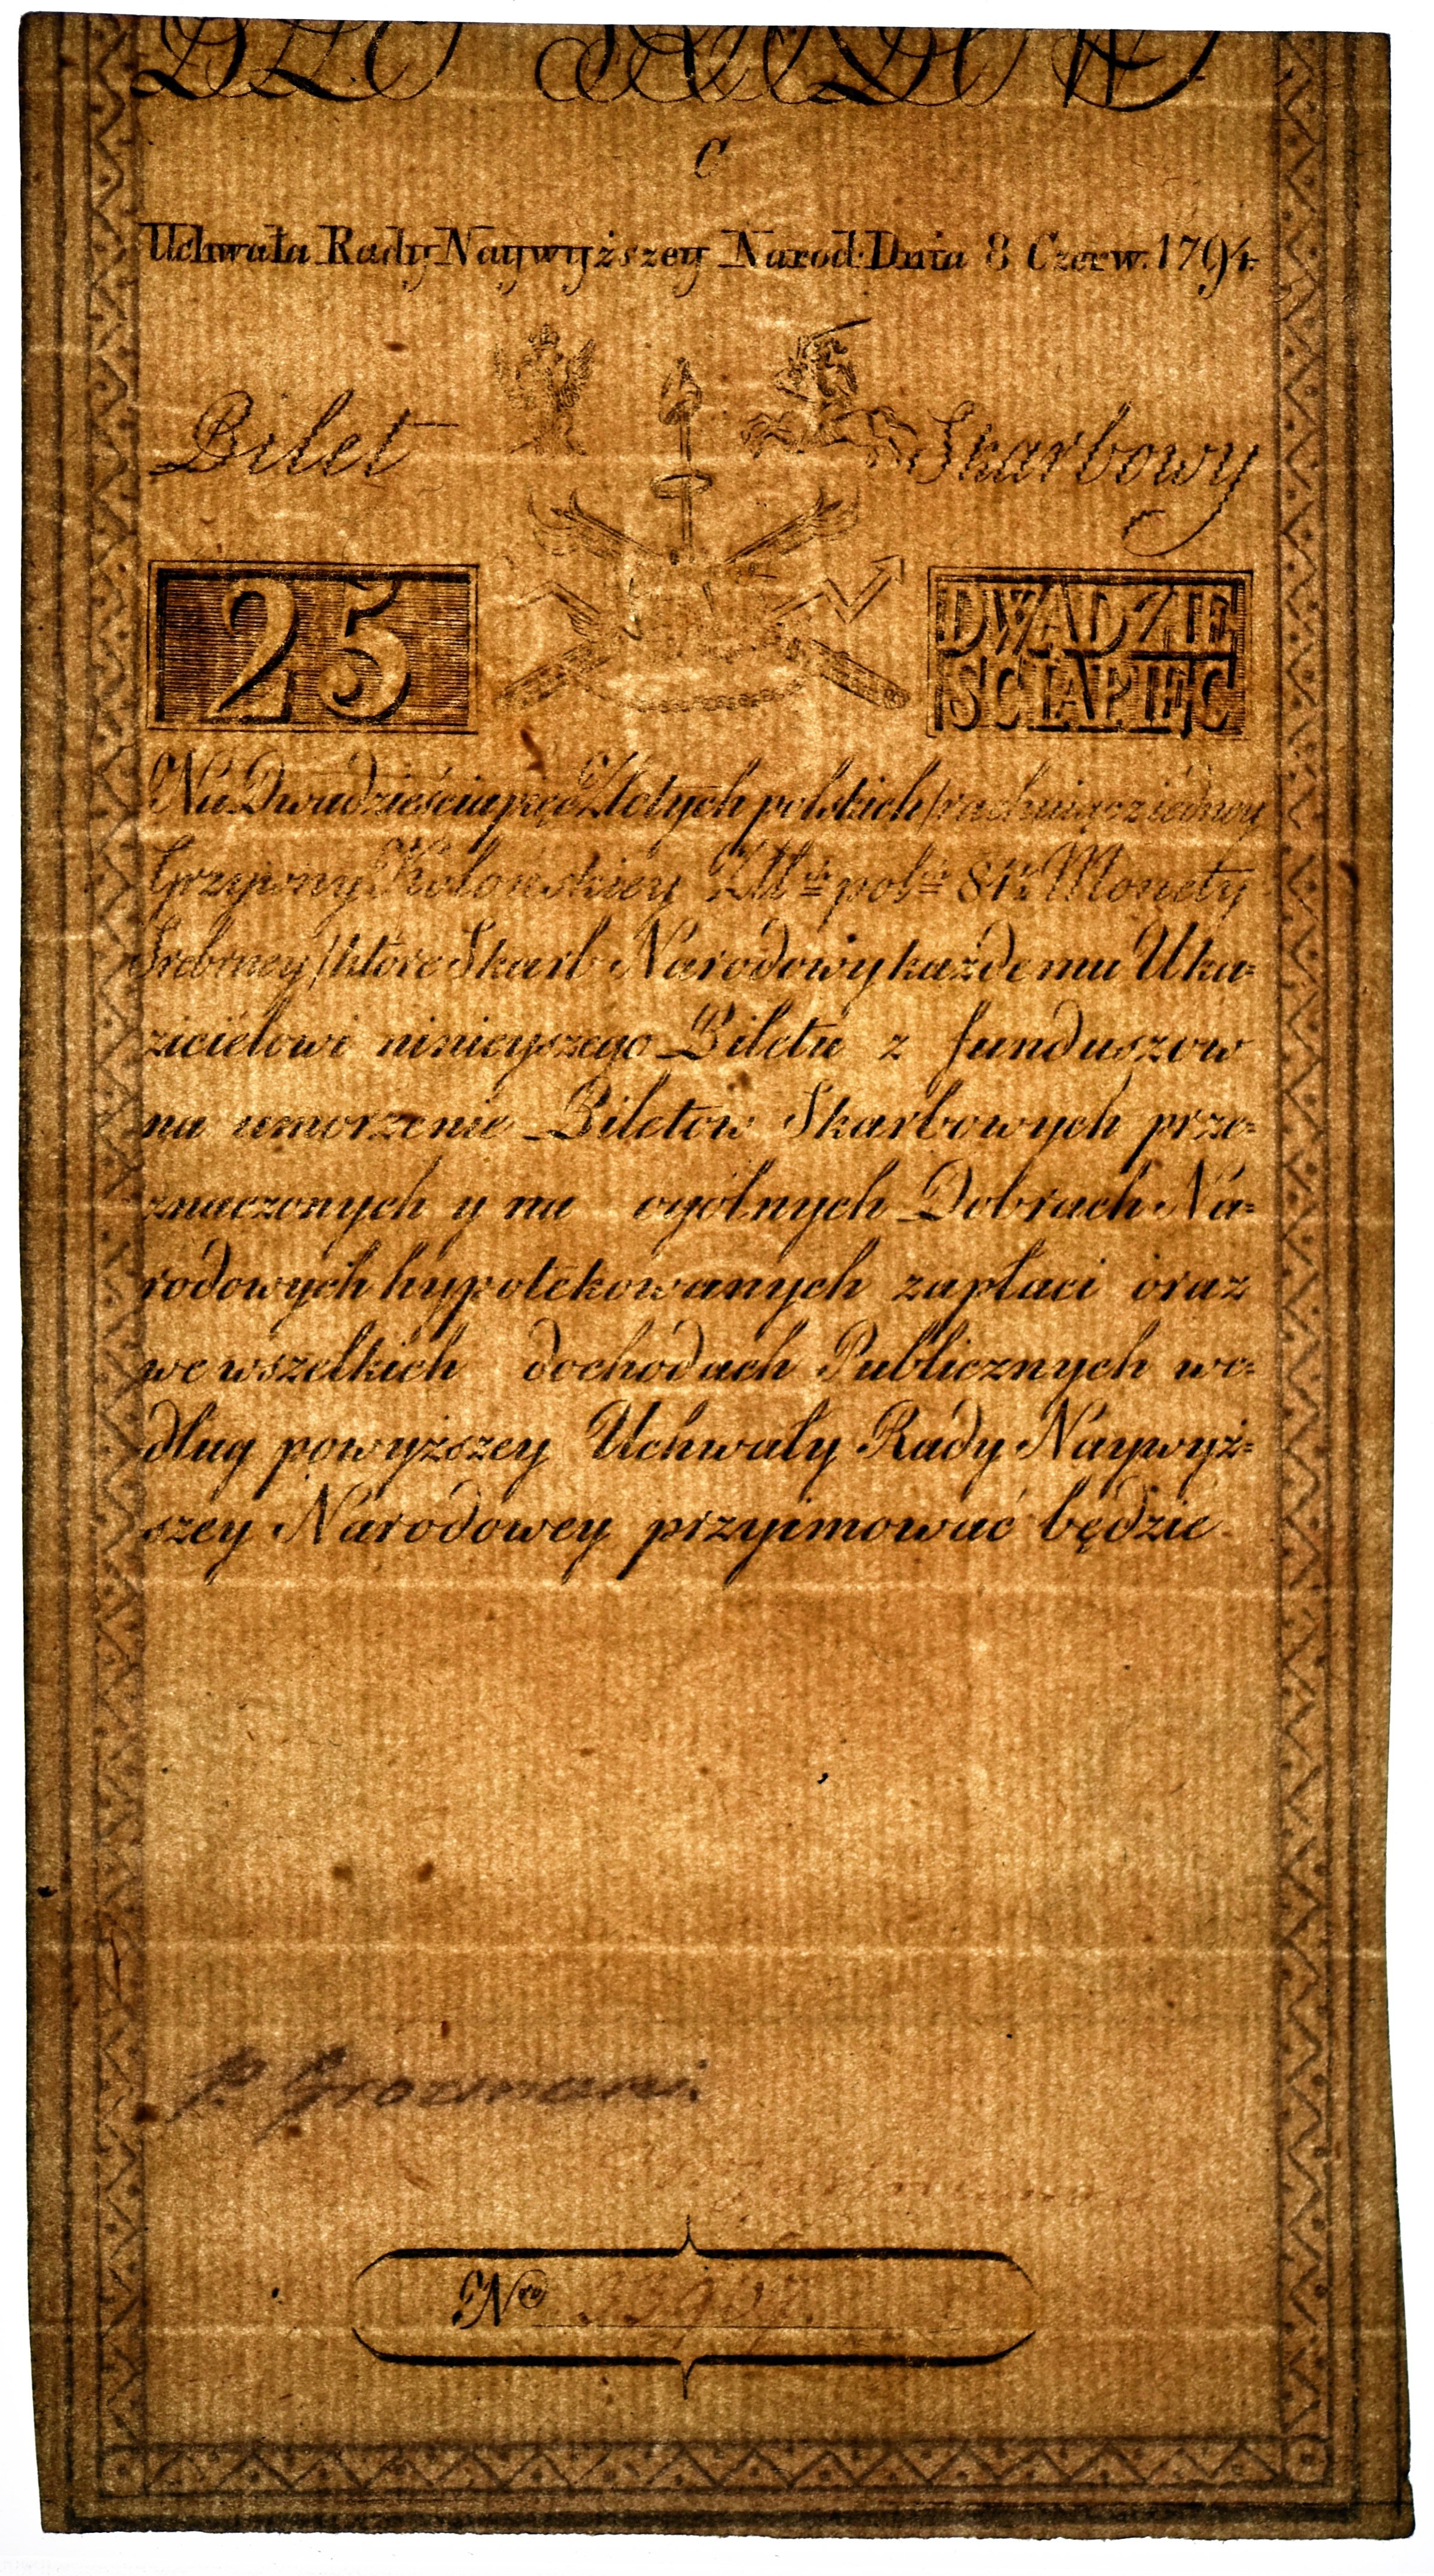 C
Uchwała Rady Naywyższey Narod: Dnia 8 Czerw. 1794.
Bilet Skarbowy
25
DWADZIE
SCIAPIĘC
Na Dwadzieściapięć Złotych polskich /rachuiąc z iedney
Grzywny Kolońskiey Zł: pol: 84½ Monety
Srebrney/ które Skarb Narodowy każdemu Uka=
zicielowi ninieyszego Biletu z funduszow
na umorzenie Biletow Skarbowych prze=
znaczonych y na ogólnych Dobrach Na=
rodowych hypotekowanych zapłaci oraz
we wszelkich dochodach Publicznych we=
dług powyższey Uchwały Rady Naywyż=
szey Narodowey przyimować będzie
P. Grozmani
Nro